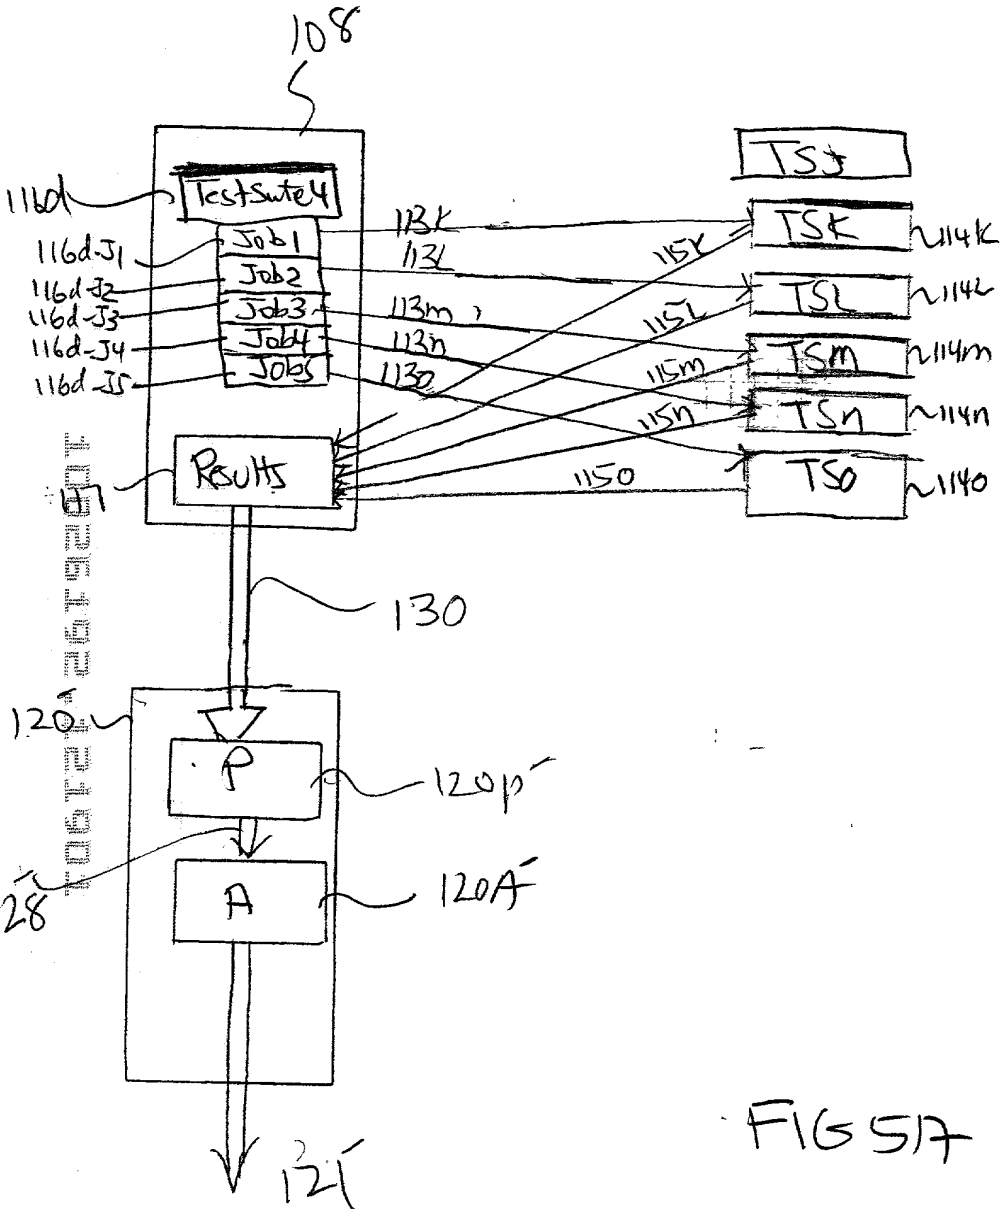 108
116d
TestSuite4
116d-J1
Job1
116d-J2
Job2
116d-J3
Job3
116d-J4
Job4
116d-J5
Job5
113K
113L
113m
113n
113o
115K
115L
115m
115n
115o
TSJ
TSK
114K
TSL
114L
TSm
114m
TSn
114n
TSo
114o
117
Results
130
120'
P
120p'
28'
A
120A'
121'
10026192.121901
FIG 517